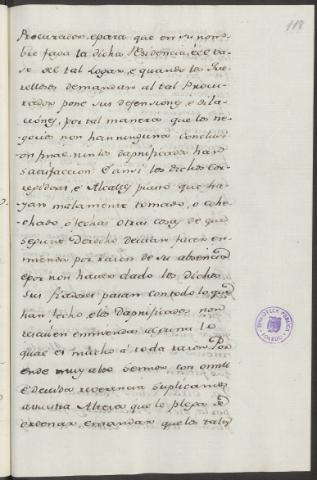 118
Procurador, e para que en su nom-
bre faga la dicha Residencia, é él va-
se del tal Logar, e quando los Que-
rellosos demandan al tal Procu-
rador pone sus defensiones é dila-
ciones, por tal manera que los ne-
gocios non han ninguna conclusion
on final, nin los dapnificados han
satisfaccion. E ansi los dichos Cor-
regidores, é Alcaldes puesto que ha-
yan malamente tomado, o cohe-
chado, ó fechas otras cosas de que
segund Derecho devian facer en-
mienda por razon de su absencia
é por non haver dado los dichos
sus fiadores pasan con todo lo que
han fecho, e los dapnificados non
resciven enmienda alguna lo
qual es mucho á toda razon. Por
ende muy alto Señor con omill
é devida reverencia suplicamos
á vuestra Alteza que le plega de
ordenar, é mandar que los tales
BIBLIOTECA PUBLICA
TOLEDO